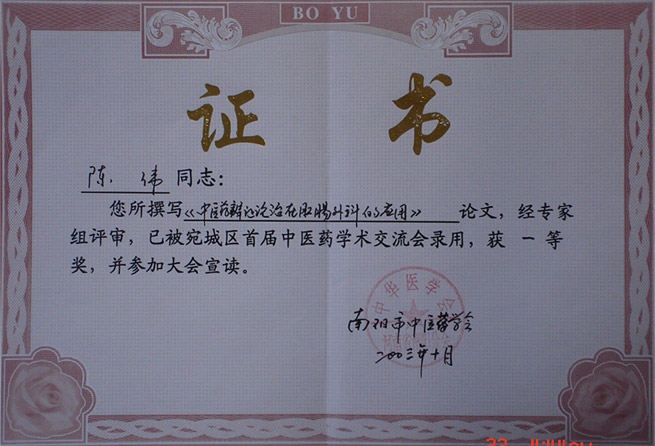 BO YU
证 书
陈 伟 同志：
您所撰写《中医药辨证论治在肛肠外科的应用》 论文，经专家
组评审，已被宛城区首届中医药学术交流会录用，获 一 等
奖，并参加大会宣读。
中华医学会
南阳市中医药学会
二00三年十月